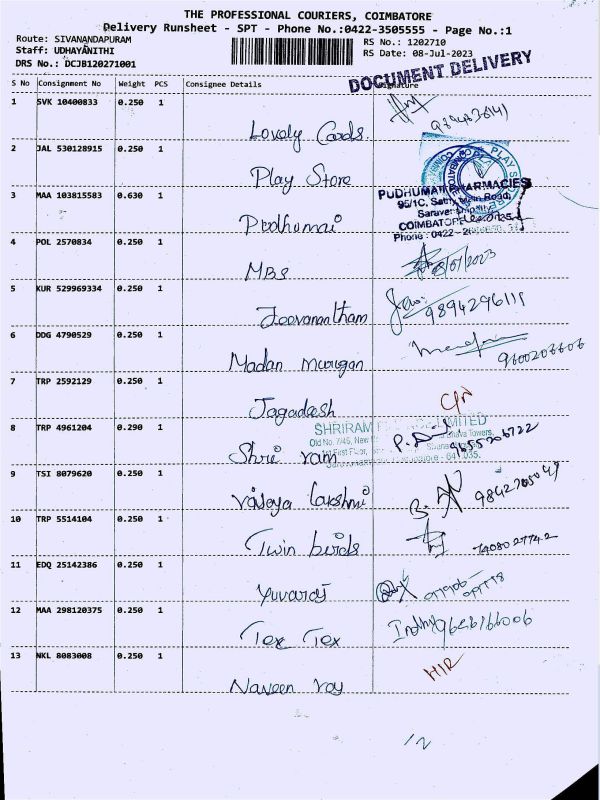 THE PROFESSIONAL COURIERS, COIMBATORE
Delivery Runsheet - SPT - Phone No.:0422-3505555 - Page No.:1
Route: SIVANANDAPURAM
RS No.: 1202710
Staff: UDHAYANITHI
RS Date: 08-Jul-2023
DRS No.: DCJB120271001
DOCUMENT DELIVERY
S No Consignment No Weight PCS Consignee Details Signature
1 SVK 10400833 0.250 1
Lovely Cards.
2 JAL 530128915 0.250 1
Play Store
3 MAA 103815583 0.630 1
PUDHUMAI PHARMACIES
95/1C, Main Road,
COIMBATORE
Phone : 0422 -
Pudhumai
4 POL 2570834 0.250 1
MBS
/07/2023
5 KUR 529969334 0.250 1
Jeevanantham
9894296111
6 DDG 4790529 0.250 1
Madan murugan
9600206606
7 TRP 2592129 0.250 1
Jagadesh
8 TRP 4961204 0.290 1
SHRIRAM LIMITED
Old No. 7/45, Towers,
First Floor,
641 035.
Shri ram
9655206722
9 TSI 8079620 0.250 1
Vijaya Lakshmi
10 TRP 5514104 0.250 1
Twin birds
7408027742
11 EDQ 25142386 0.250 1
Yuvaraj
12 MAA 298120375 0.250 1
Tex Tex
9626166006
13 NKL 8083008 0.250 1
Naveen roy